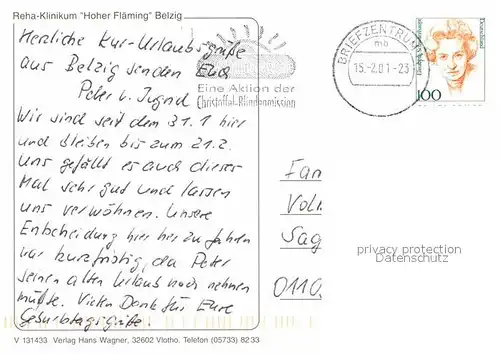 Reha-Klinikum "Hoher Fläming" Belzig
Herzliche Kur-Urlaubsgrüße
aus Belzig senden Euch
Peter u. Ingrid
Wir sind seit dem 31.1 hier
und bleiben bis zum 21.2.
Uns gefällt es auch dieses
Mal sehr gut und lassen
uns verwöhnen. Unsere
Entscheidung hier her zu fahren
war kurzfristig, da Peter
seinen alten Urlaub noch nehmen
mußte. Vielen Dank für Eure
Geburtstagsgrüße.
V 131433 Verlag Hans Wagner, 32602 Vlotho. Telefon (05733) 8233
Eine Aktion der
Christoffel-Blindenmission
BRIEFZENTRUM
mb
15.-2.01-23
Deutschland
100
Fam
Volk
Sag
0110
privacy protection
Datenschutz